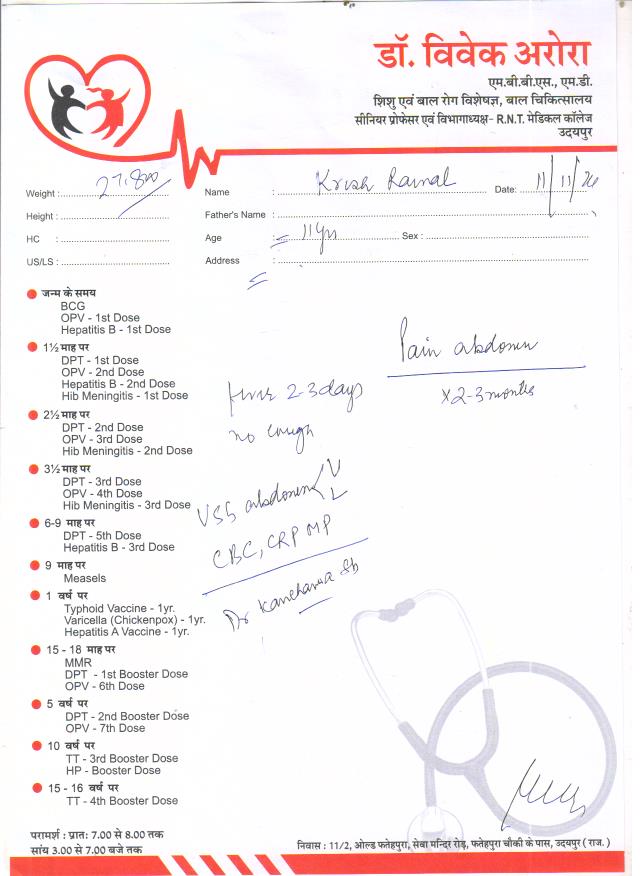 डॉ. विवेक अरोरा
एम.बी.बी.एस., एम.डी.
शिशु एवं बाल रोग विशेषज्ञ, बाल चिकित्सालय
सीनियर प्रोफेसर एवं विभागाध्यक्ष- R.N.T. मेडिकल कॉलेज
उदयपुर
Weight : 27.800
Name : Krish Date: 11/11/24
Height :
Father's Name :
HC :
Age : 11yr Sex :
US/LS :
Address :
जन्म के समय
BCG
OPV - 1st Dose
Hepatitis B - 1st Dose
1½ माह पर
DPT - 1st Dose
OPV - 2nd Dose
Hepatitis B - 2nd Dose
Hib Meningitis - 1st Dose
2½ माह पर
DPT - 2nd Dose
OPV - 3rd Dose
Hib Meningitis - 2nd Dose
3½ माह पर
DPT - 3rd Dose
OPV - 4th Dose
Hib Meningitis - 3rd Dose
6-9 माह पर
DPT - 5th Dose
Hepatitis B - 3rd Dose
9 माह पर
Measels
1 वर्ष पर
Typhoid Vaccine - 1yr.
Varicella (Chickenpox) - 1yr.
Hepatitis A Vaccine - 1yr.
15 - 18 माह पर
MMR
DPT - 1st Booster Dose
OPV - 6th Dose
5 वर्ष पर
DPT - 2nd Booster Dose
OPV - 7th Dose
10 वर्ष पर
TT - 3rd Booster Dose
HP - Booster Dose
15 - 16 वर्ष पर
TT - 4th Booster Dose
Pain abdomen
x 2-3 months
2-3 days
no cough
USG abdomen
CBC, CRP MP
Dr
परामर्श : प्रातः 7.00 से 8.00 तक
सांय 3.00 से 7.00 बजे तक
निवास : 11/2, ओल्ड फतेहपुरा, सेवा मन्दिर रोड़, फतेहपुरा चौकी के पास, उदयपुर ( राज. )